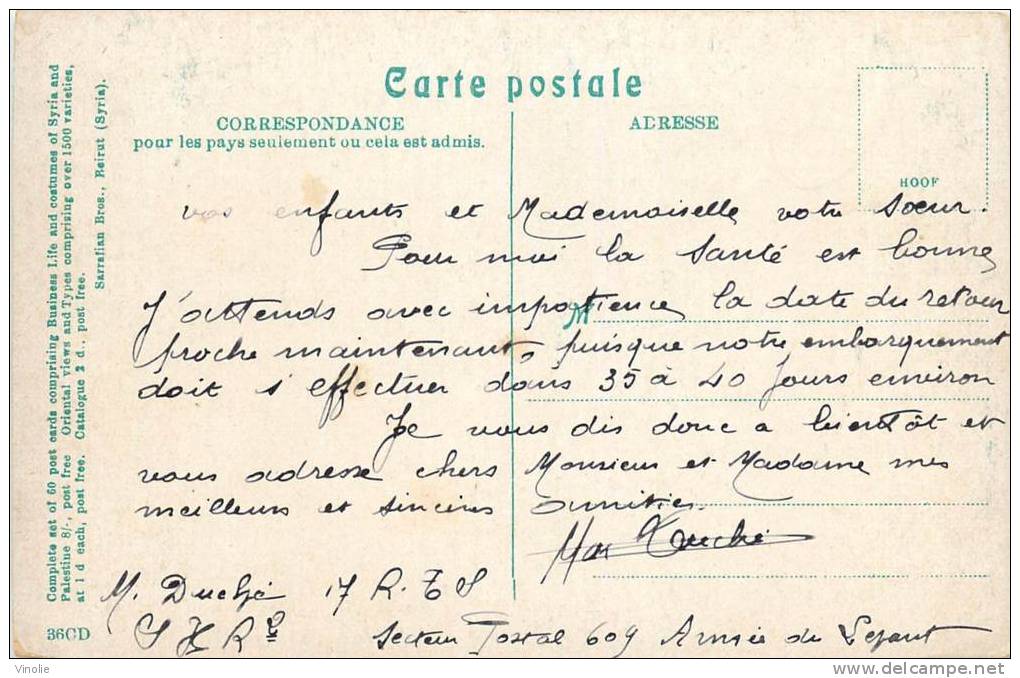 Carte postale
CORRESPONDANCE
pour les pays seulement ou cela est admis.
ADRESSE
HOOF
vos enfants et Mademoiselle votre Soeur.
Pour moi la Santé est bonne
J'attends avec impatience la date du retour
proche maintenant, puisque notre embarquement
doit s'effectuer dans 35 à 40 Jours environ
Je vous dis donc a bientôt et
vous adresse chers Monsieur et Madame mes
meilleurs et sincères amitiés.
M. 17 R. T S
Secteur Postal 609 Armée du Levant
Complete set of 60 post cards comprising Business Life and costumes of Syria and
Palestine 8/-, post free Oriental views and Types comprising over 1500 varieties,
at 1 d each, post free. Catalogue 2 d., post free.
Sarrafian Bros., Beirut (Syria).
36CD
Vinolie
http://vinolie.delcampe.net